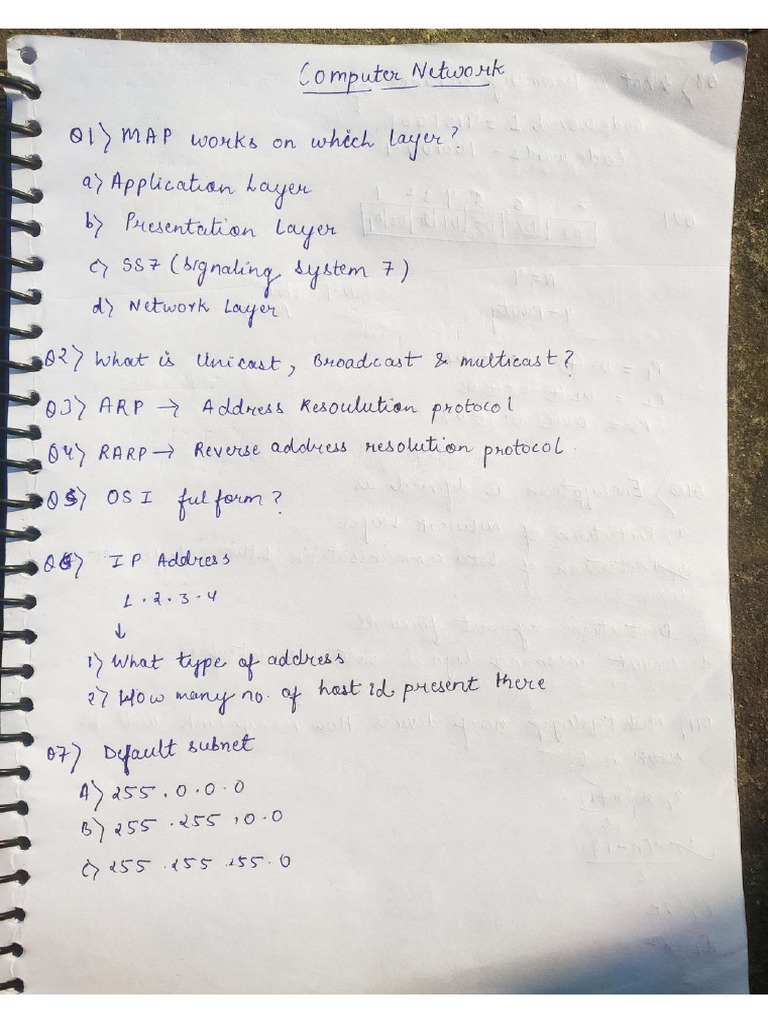 Computer Network
Q1) MAP works on which layer?
a) Application Layer
b) Presentation Layer
c) SS7 (Signaling System 7)
d) Network Layer
Q2) What is Unicast, Broadcast & multicast?
Q3) ARP → Address Resoulution protocol
Q4) RARP → Reverse address resolution protocol
Q5) OSI ful form?
Q6) IP Address
1.2.3.4
↓
1) What type of address
2) How many no. of host id present there
Q7) Default subnet
A) 255.0.0.0
B) 255.255.0.0
C) 255.255.255.0